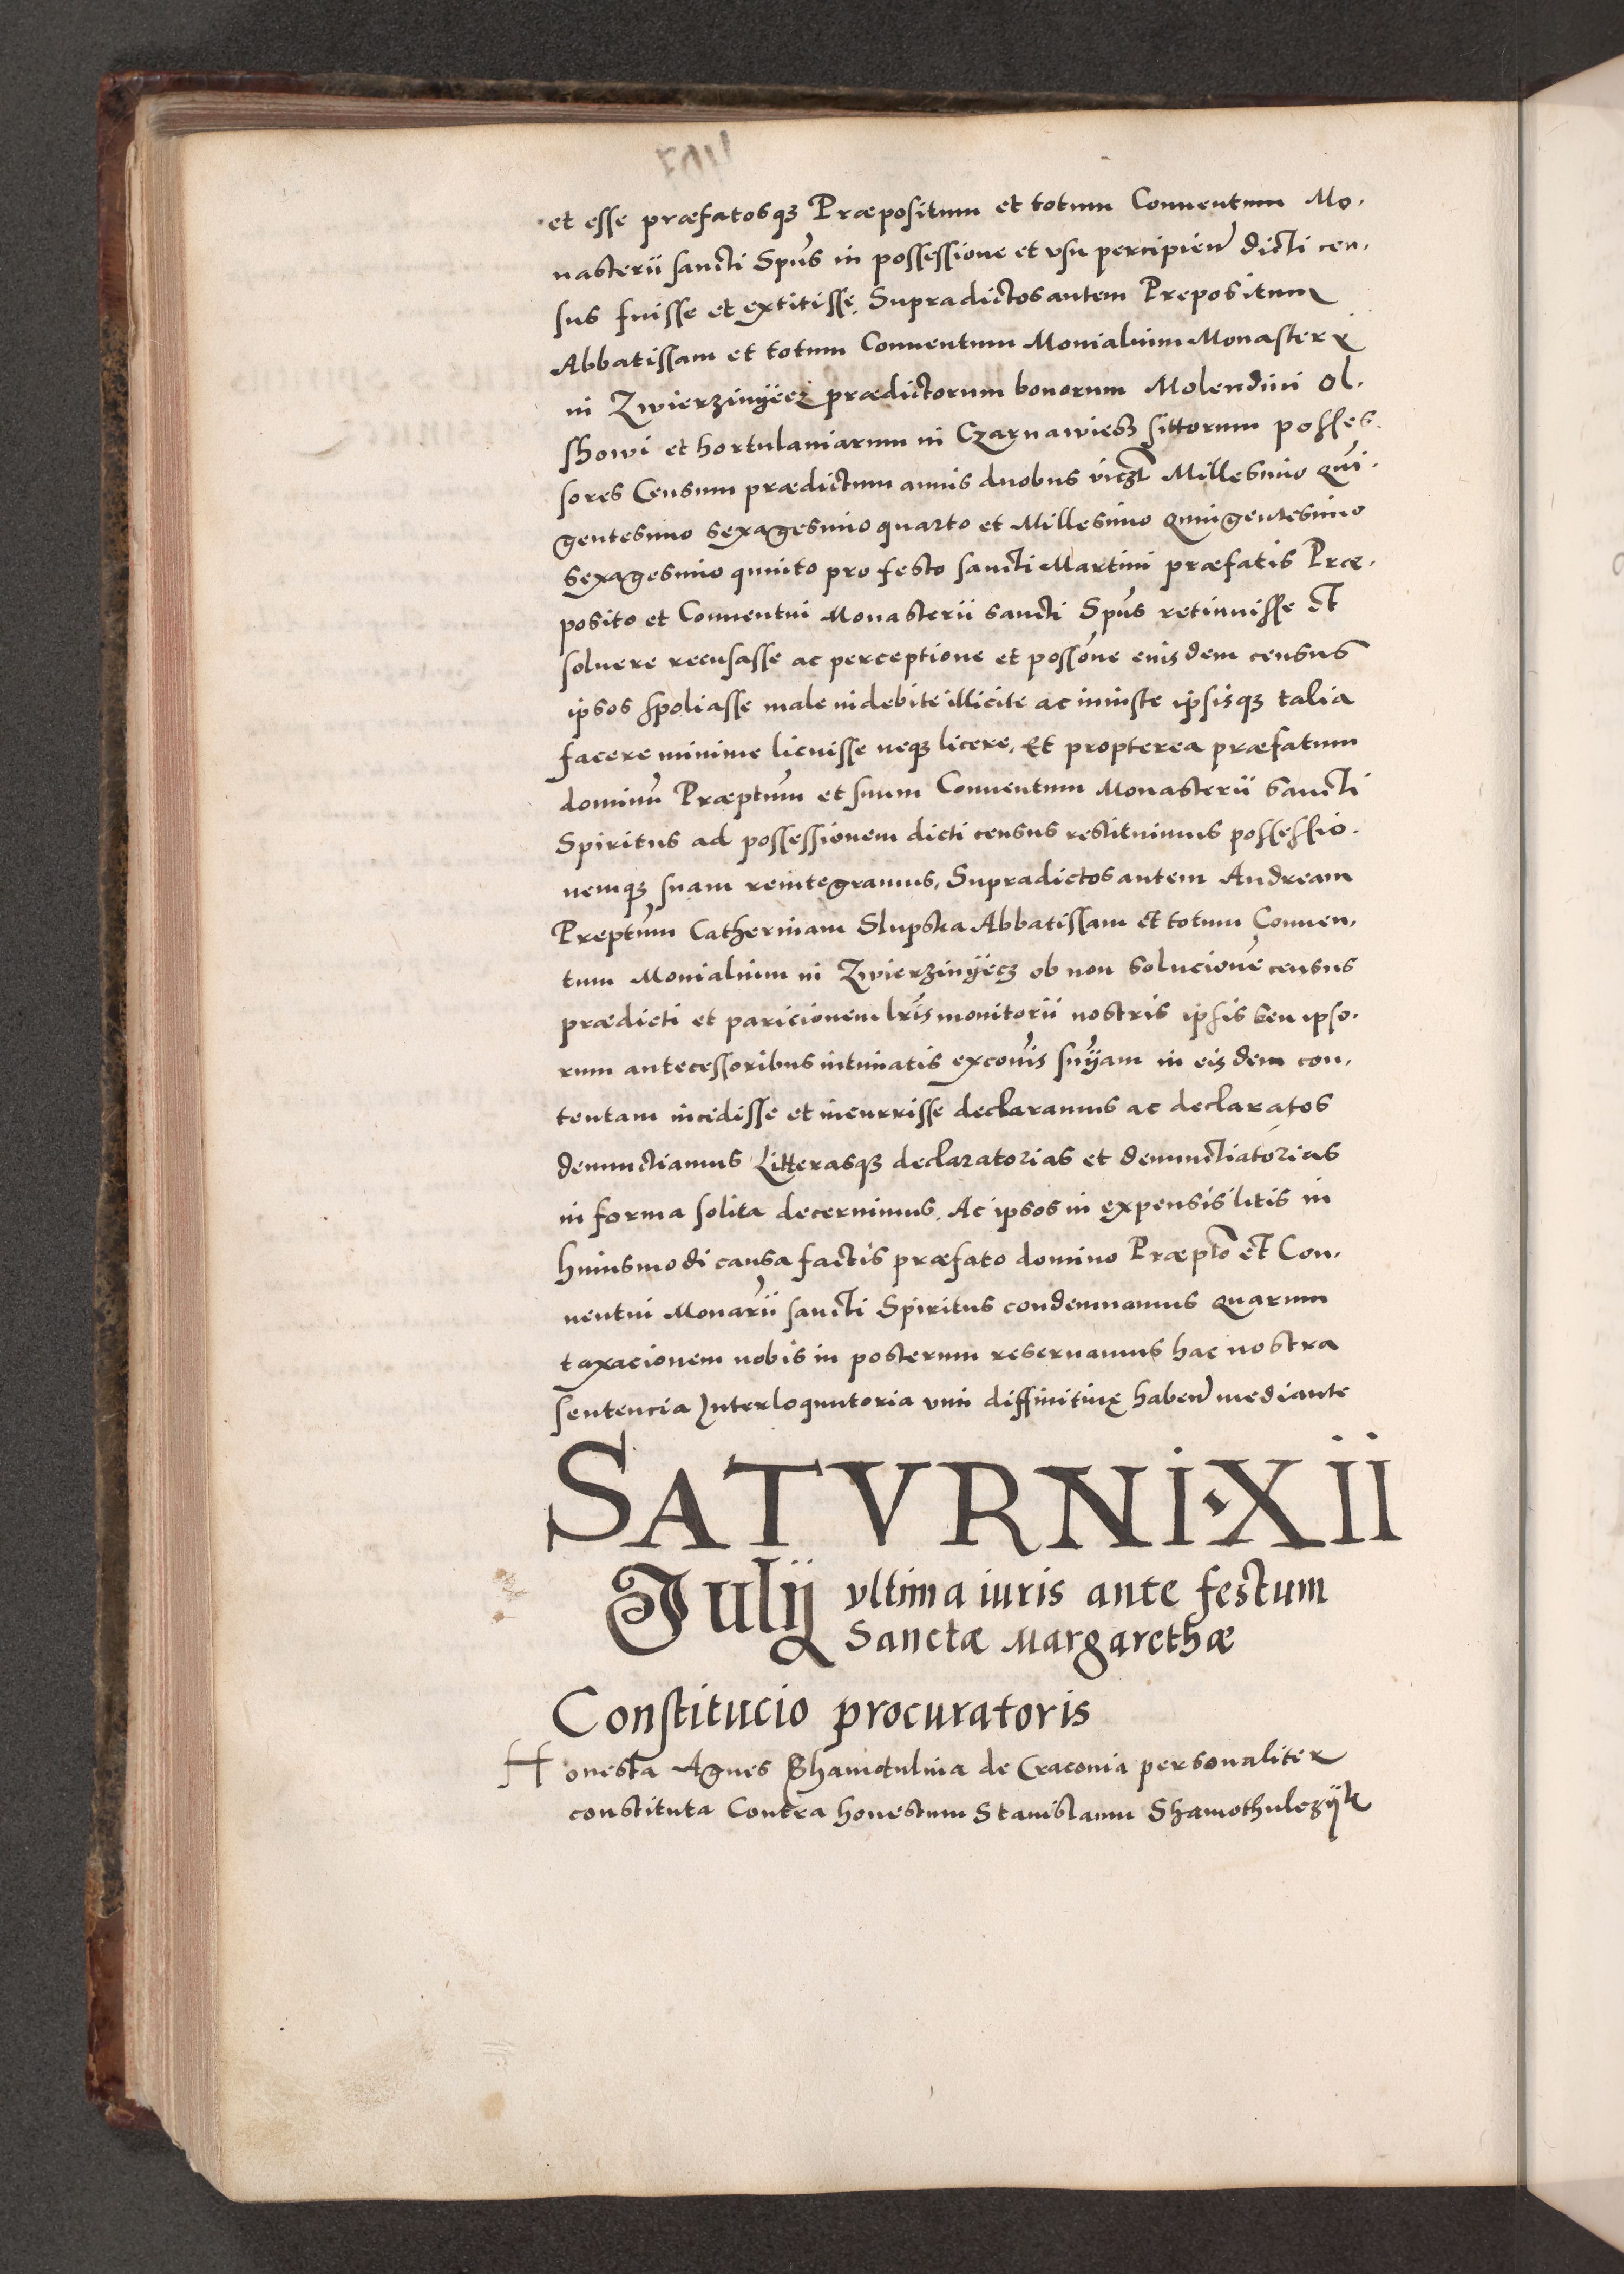 et esse præfatosqȝ Præpositum et totum Conuentum Mo.
nasterii sancti Spūs in possessione et vsu percipien̄ dicti cen.
sus fuisse et extitisse. Supradictos autem Prepositum
Abbatissam et totum Conuentum Monialium Monasterii
in Zwierzinÿecz prædictorum bonorum Molendini Ol.
showi et hortulaniarum in Czarnawiesz sittorum posses.
sores Censum prædictum annis duobus viczt Millesimo Qui.
gentesimo sexagesimo quarto et Millesimo Quingentesimo
sexagesimo quinto pro festo sancti Martini præfatis Præ.
posito et Conuentui Monasterii sancti Spūs retinuisse et
soluere recusasse ac perceptione et possōne eiusdem census
ipsos spoliasse male indebite illicite ac iniuste ipsisqȝ talia
facere minime licuisse neqȝ licere, Et propterea præfatum
dominū Præptūm et suum Conuentum Monasterii sancti
Spiritus ad possessionem dicti census restituimus possessio.
nemqȝ suam reintegramus, Supradictos autem Andream
Preptūm Catherinam Slupska Abbatissam et totum Conuen.
tum Monialium in Zwierzinÿecz ob non solucionē census
prædicti et paricionem lr̄is monitorii nostris ipsis seu ipso.
rum antecessoribus intimatis excōis sn̄ÿam in eisdem con.
tentam incidisse et incurrisse declaramus ac declaratos
denunctiamus Litterasqȝ declaratorias et denunctiatorias
in forma solita decernimus. Ac ipsos in expensis litis in
huiusmodi causa factis præfato domino Præptō et Con.
uentui Monarīi sancti Spiritus condemnamus Quarum
taxacionem nobis in posterum reseruamus hac nostra
sentencia Interloquutoria vim diffinitiuę haben̄ mediante
SATVRNI·XII
Julij vltima iuris ante festum
Sanctæ Margarethæ
Constitucio procuratoris
Honesta Agnes Shamotulina de Craconia personaliter
constituta Contra honestum Stanislaum Shamothulczÿk